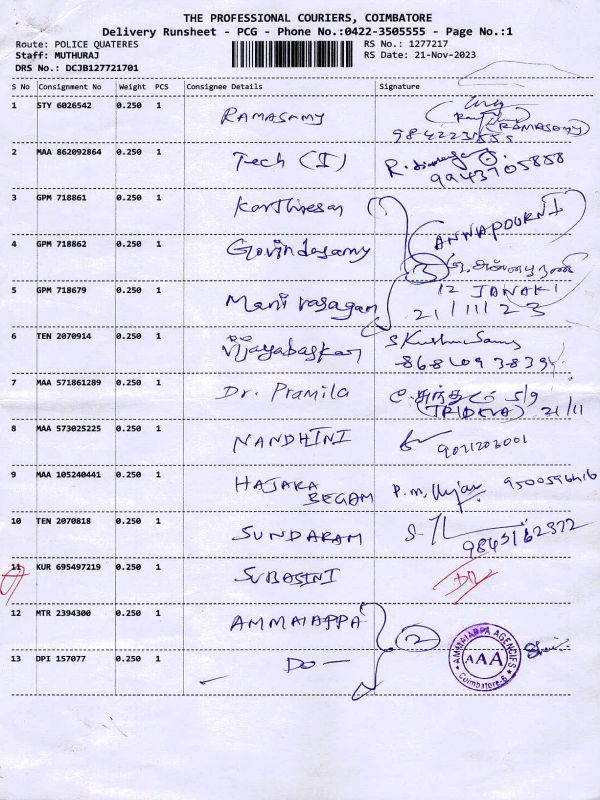 THE PROFESSIONAL COURIERS, COIMBATORE
Delivery Runsheet - PCG - Phone No.:0422-3505555 - Page No.:1
Route: POLICE QUATERES RS No.: 1277217
Staff: MUTHURAJ RS Date: 21-Nov-2023
DRS No.: DCJB127721701
S No Consignment No Weight PCS Consignee Details Signature
1 STY 6026542 0.250 1 RAMASAMY (RAMASAMY)
2 MAA 862092864 0.250 1 Tech (I) 9943705888
3 GPM 718861 0.250 1 Karthiresan
4 GPM 718862 0.250 1 Govindasamy (ANNAPOORNI)
3
5 GPM 718679 0.250 1 Manivasagan 12 JANAKI
21/11/23
6 TEN 2070914 0.250 1 Vijayabaskar
7 MAA 571861289 0.250 1 Dr. Pramila 5/9
(TRIDEVA) 21/11
8 MAA 573025225 0.250 1 NANDHINI
9 MAA 105240441 0.250 1 HAJARA
BEGAM
10 TEN 2070818 0.250 1 SUNDARAM 9843162372
11 KUR 695497219 0.250 1 SUBASINI
12 MTR 2394300 0.250 1 AMMAIAPPA
2
13 DPI 157077 0.250 1 — DO —
AMMAIAPPA AGENCIES
AAA
Coimbatore-6